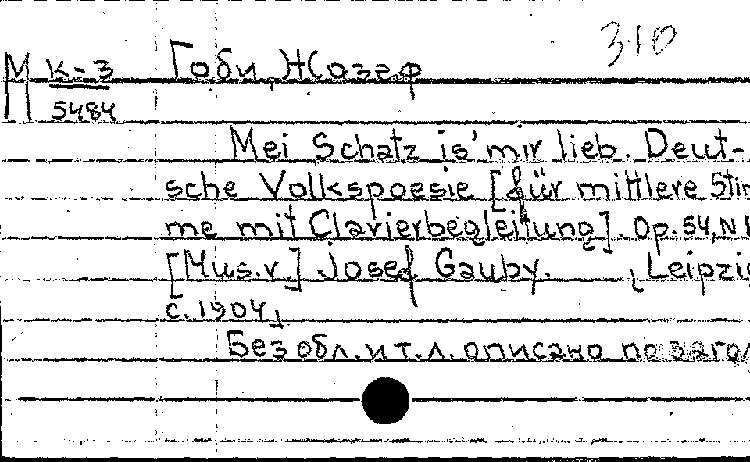 310
М К-3 Гоби, Жозеф
5484
Mei Schatz is' mir lieb. Deut-
sche Volkspoesie [für mittlere Stim
me mit Clavierbegleitung]. Op. 54, N1
[Mus. v.] Josef Gauby. [Leipzi
с. 1904]
Без обл. и т. л. описано по загол